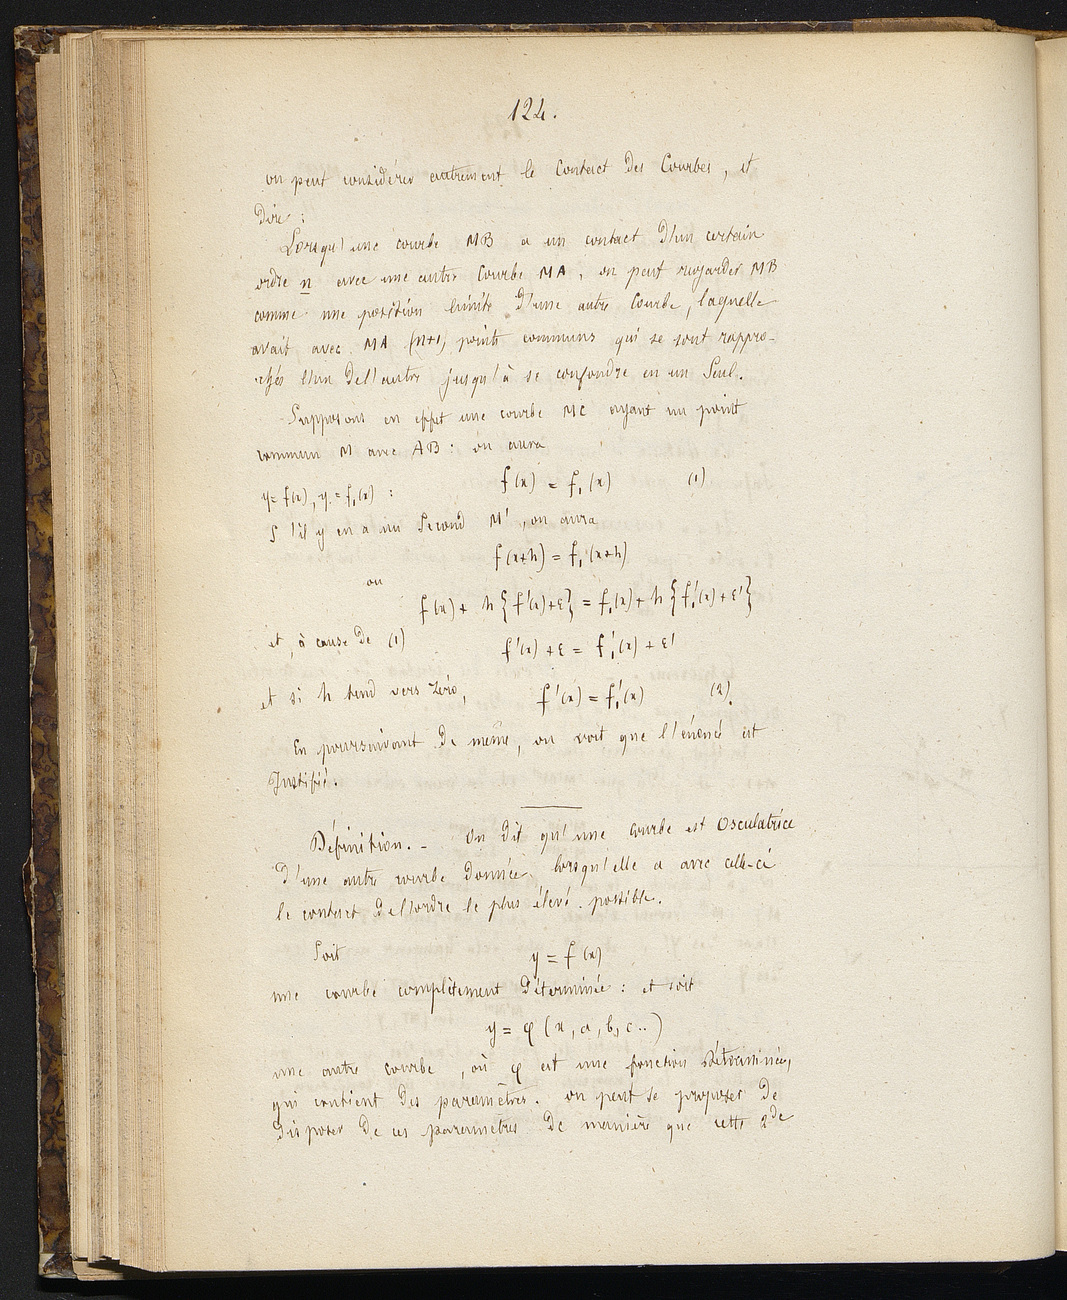 124.
on peut considérer autrement le Contact des Courbes, et
dire :
Lorsqu'une courbe MB a un contact d'un certain
ordre n avec une autre Courbe MA, on peut regarder MB
comme une position limite d'une autre Courbe, laquelle
avait avec MA (n+1) points communs qui se sont rappro-
chés l'un de l'autre jusqu'à se confondre en un Seul.
Supposons en effet une courbe MC ayant un point
commun M avec AB : on aura
y = f(x), y = f₁(x) : f(x) = f₁(x) (1)
S'il y en a un Second M', on aura
f(x+h) = f₁(x+h)
ou
f(x) + h {f'(x)+ε} = f₁(x) + h {f₁'(x)+ε'}
et, à cause de (1) f'(x) + ε = f₁'(x) + ε'
et si h tend vers zéro, f'(x) = f₁'(x) (2).
En poursuivant de même, on voit que l'énoncé est
Justifié.
Définition. - On dit qu'une courbe est Osculatrice
d'une autre courbe donnée, lorsqu'elle a avec celle-ci
le contact de l'ordre le plus élevé possible.
Soit y = f(x)
une courbe complètement déterminée : et soit
y = φ (x, a, b, c..)
une autre courbe, où φ est une fonction déterminée,
qui contient des paramètres. on peut se proposer de
disposer de ces paramètres de manière que cette 2de